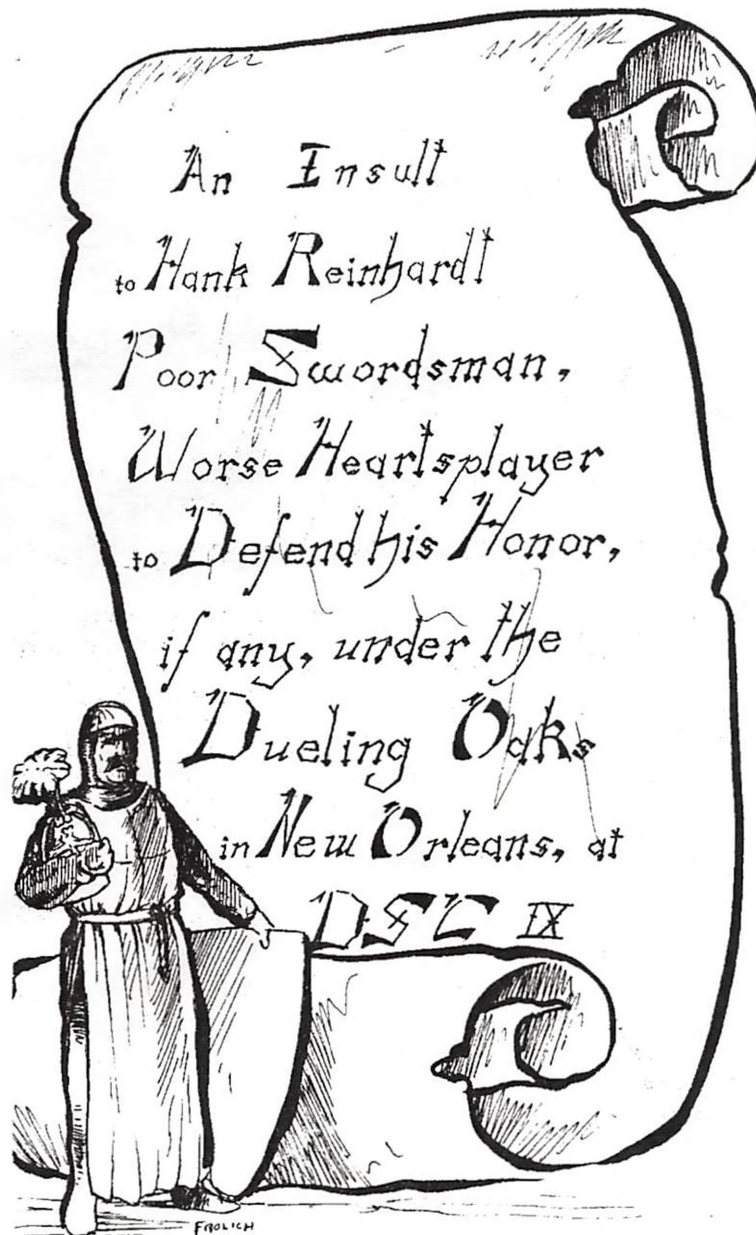 An Insult
to Hank Reinhardt
Poor Swordsman,
Worse Heartsplayer
to Defend his Honor,
if any, under the
Dueling Oaks
in New Orleans, at
DSC IX
FROLICH